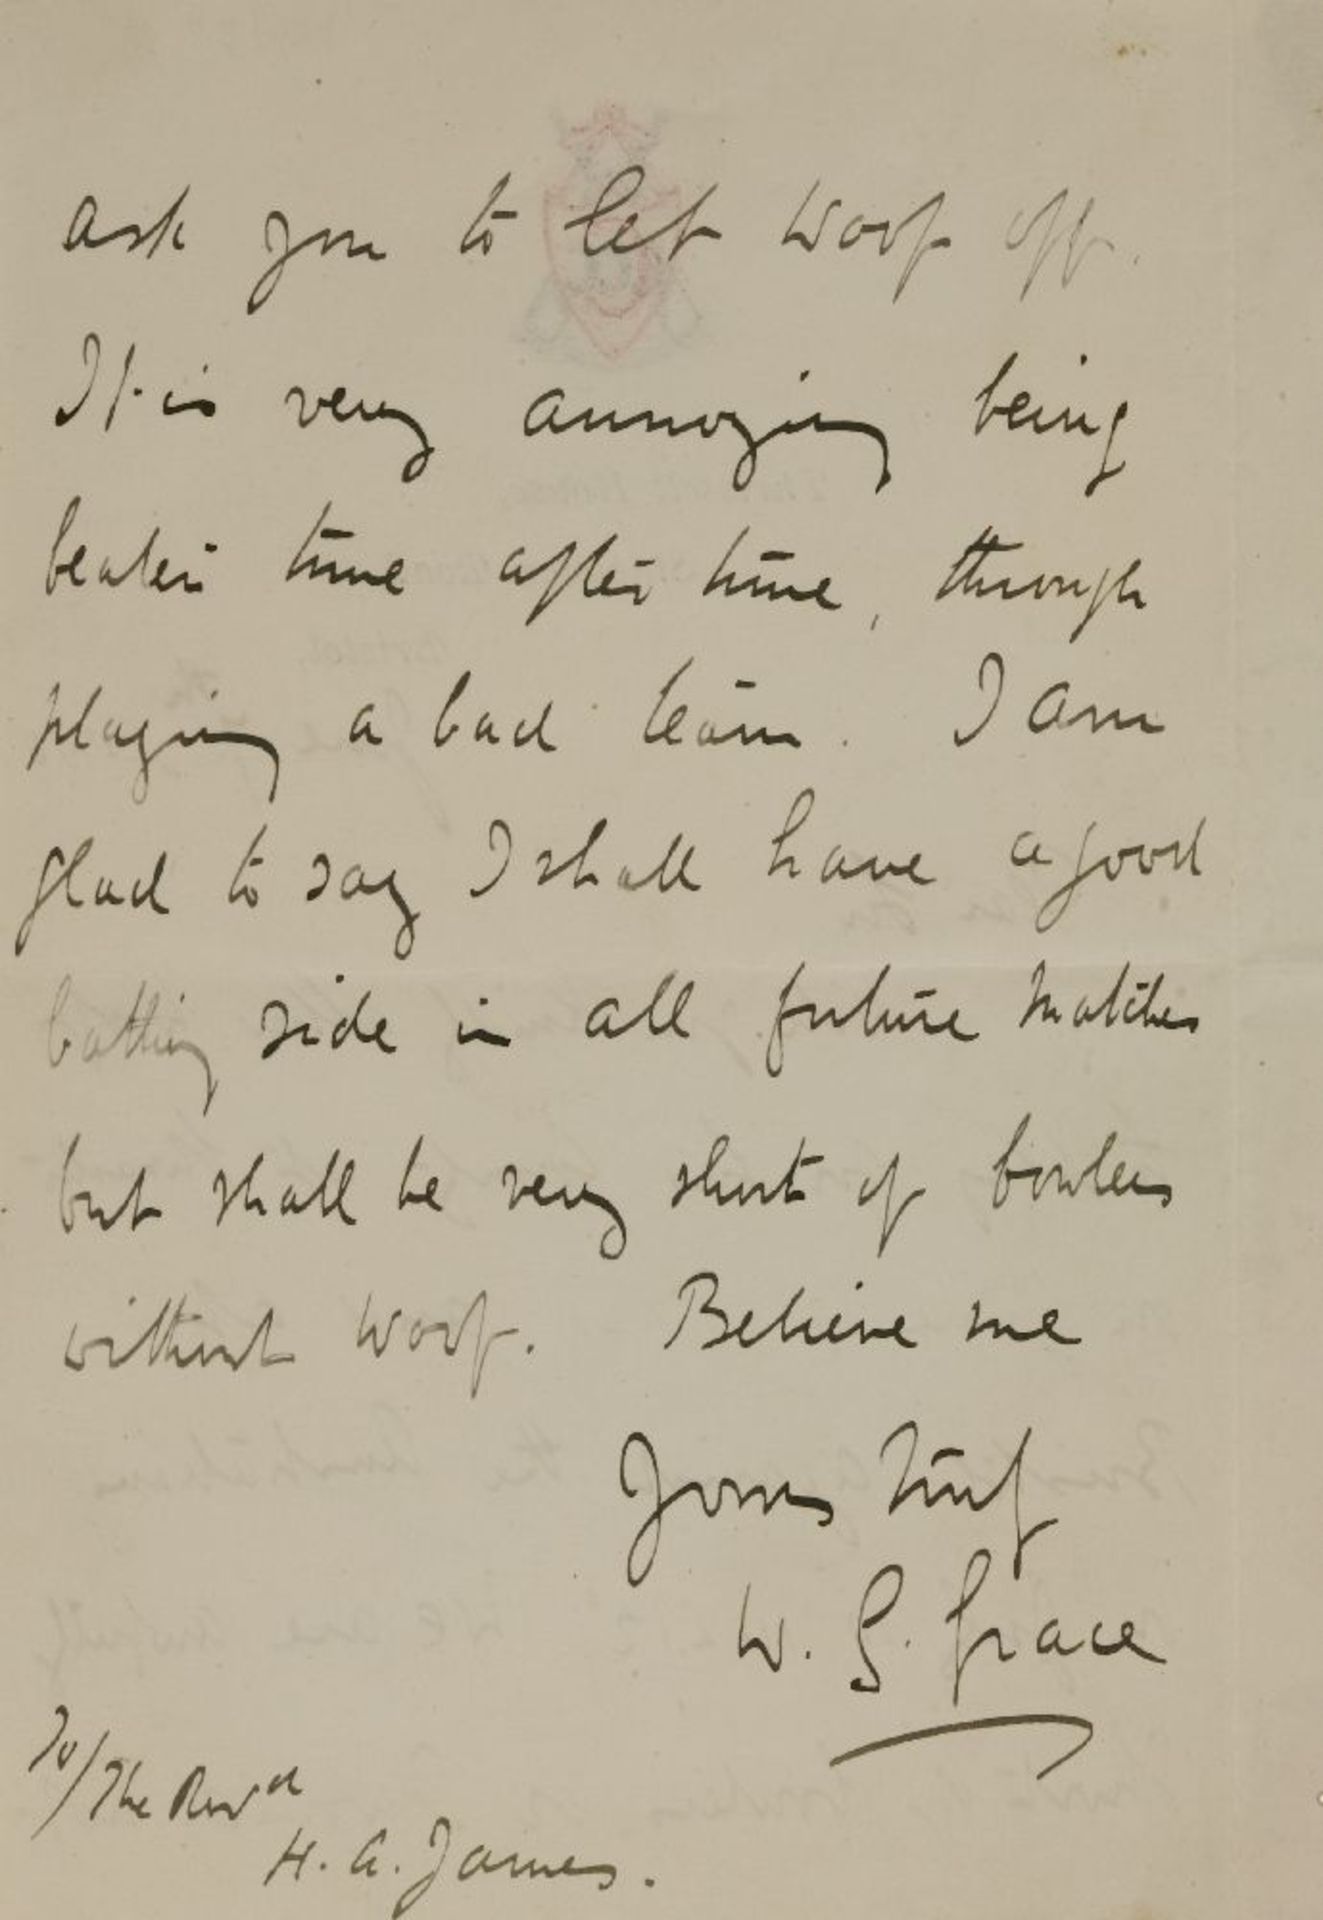 ask you to let Woof off.
It is very annoying being
beaten time after time, through
playing a bad team. I am
glad to say I shall have a good
batting side in all future matches
but shall be very short of bowlers
without Woof. Believe me
Yours truly
W. G. Grace
To/The Revd
H. A. James.